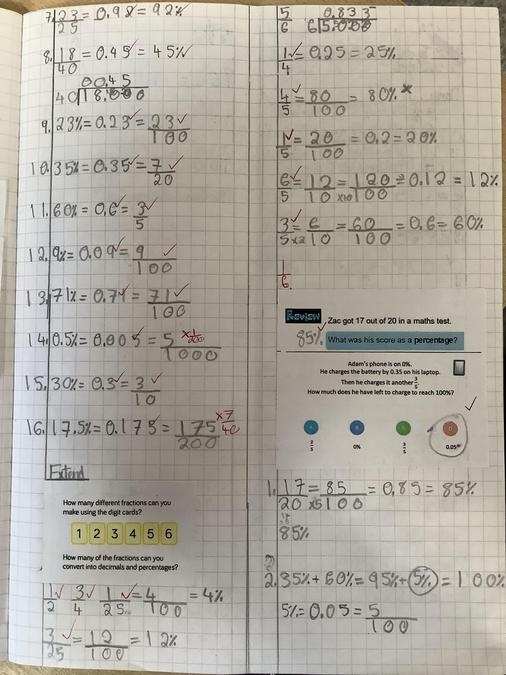 7. 23/25 = 0.98 = 92%
8. 18/40 = 0.45 = 45%
00.45
40 18.000
9. 23% = 0.23 = 23/100
10. 35% = 0.35 = 7/20
11. 60% = 0.6 = 3/5
12. 9% = 0.09 = 9/100
13. 71% = 0.71 = 71/100
14. 0.5% = 0.005 = 5/1000 x 1/200
15. 30% = 0.3 = 3/10
16. 17.5% = 0.175 = 175/200 x 7/40
Extend
How many different fractions can you
make using the digit cards?
1 2 3 4 5 6
How many of the fractions can you
convert into decimals and percentages?
1/2 3/4 1/25 = 4/100 = 4%
3/25 = 12/100 = 12%
5/6 0.833
6 5.000
1/4 = 0.25 = 25%
4/5 = 80/100 = 80%
1/5 = 20/100 = 0.2 = 20%
6/5 = 12/10 x10 = 120/100 = 0.12 = 12%
3/5 x2 = 6/10 = 60/100 = 0.6 = 60%
1/6.
Review Zac got 17 out of 20 in a maths test.
85% What was his score as a percentage?
Adam's phone is on 0%.
He charges the battery by 0.35 on his laptop.
Then he charges it another 3/5
How much does he have left to charge to reach 100%?
A B C D
2/5 0% 3/5 0.05
1. 17/20 x5 = 85/100 = 0.85 = 85%
85%
2. 35% + 60% = 95% + 5% = 100%
5% = 0.05 = 5/100